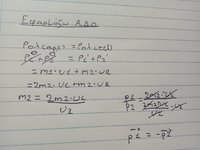 Εφαρμόζω Α.Δ.Ο
Pολ(αρχ) = Pολ(τελ)
p1 + p2 = p1' + p2'
= m1·υ1 + m2·υ2
= 2m2·υ1 + m2·υ2
m2 = 2m2·υ1 / υ2
p1 / p2 = 2m2·υ1 / 2m2·υ1 / υ2 · υ2
p1 = -p2